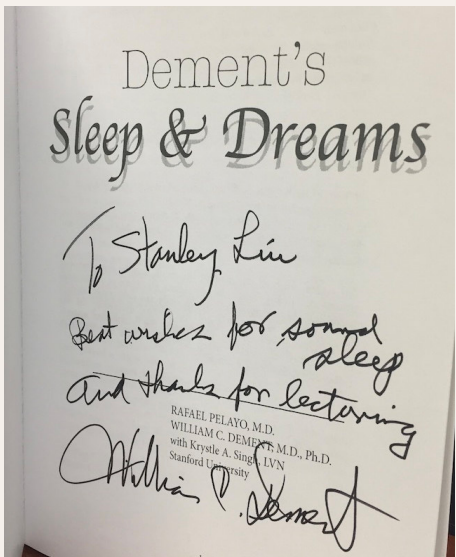 Dement's
Sleep & Dreams
To Stanley Liu
Best wishes for sound
sleep
and thanks for lecturing
RAFAEL PELAYO, M.D.
WILLIAM C. DEMENT, M.D., Ph.D.
with Krystle A. Singh, LVN
Stanford University
William C. Dement